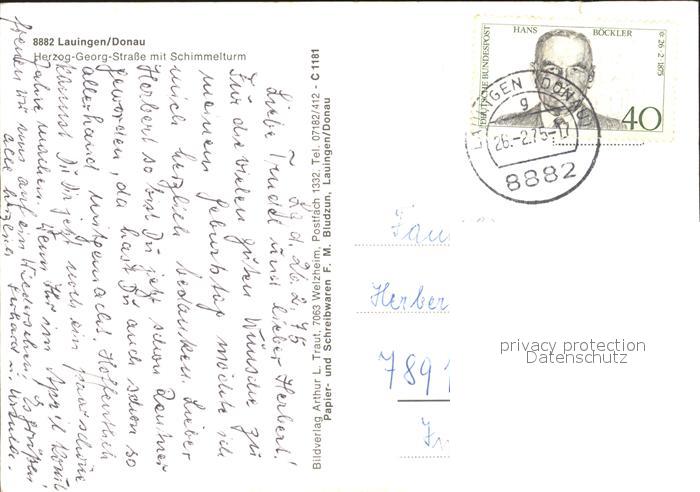 8882 Lauingen/Donau
Herzog-Georg-Straße mit Schimmelturm
Lgd. 26.2.75
Liebe Trudel und lieber Herbert!
Für die vielen guten Wünsche zu
meinem Geburtstag möchte ich
mich herzlich bedanken. Lieber
Herbert so bist Du jetzt schon Rentner
geworden, da hast Du auch schon so
allerhand mitgemacht. Hoffentlich
kannst Du Dir jetzt noch ein paar schöne
Jahre machen. Wenn Ihr im April kommt
freuen wir uns auf ein Wiedersehen. Es grüßen
alle herzlich
Bildverlag Arthur L. Traut, 7063 Welzheim, Postfach 1332, Tel. 07182/412 - C 1181
Papier- und Schreibwaren F. M. Bludzun, Lauingen/Donau
DEUTSCHE BUNDESPOST
HANS BÖCKLER
✡ 26·2·1875
40
LAUINGEN (DONAU)
g
26.-2.75-17
8882
Fam
Herber
7891
privacy protection
Datenschutz